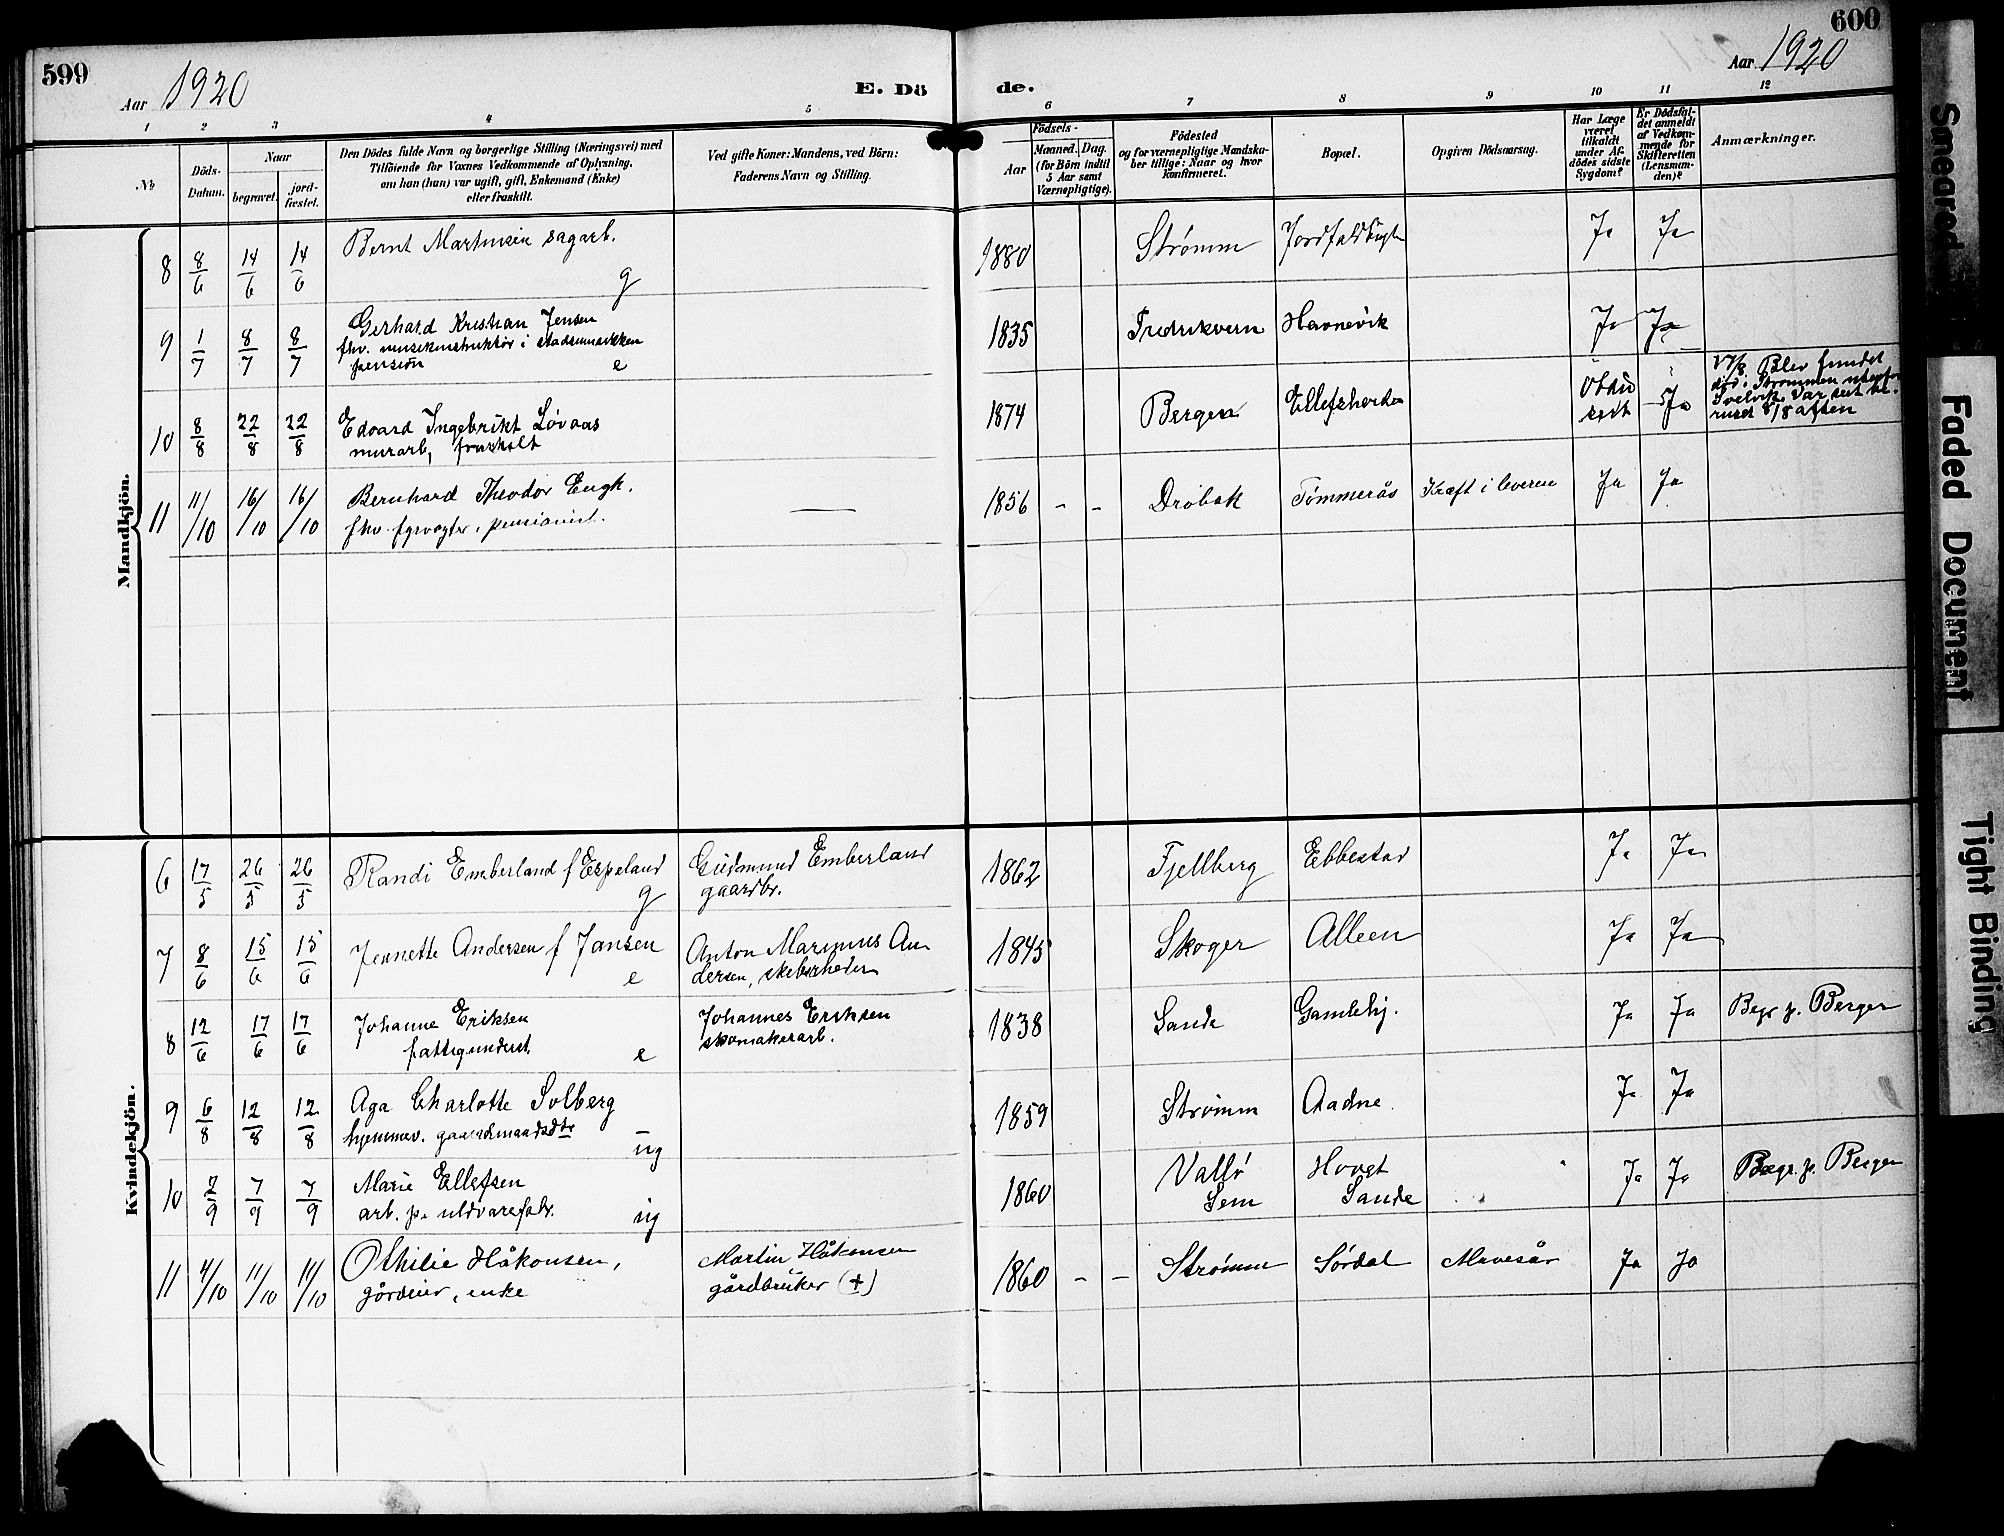 599
Aar 1920
E. Dö
de.
600
Aar 1920
1 2 3 4 5
6 7 8 9 10 11 12
No
Döds-
Datum.
Naar
begravet.
jord-
fæstet.
Den Dödes fulde Navn og borgerlige Stilling (Næringsvei) med
Tilföiende for Voxnes Vedkommende af Oplysning,
om han (hun) var ugift, gift, Enkemand (Enke)
eller fraskilt.
Ved gifte Koner: Mandens, ved Börn:
Faderens Navn og Stilling.
Födsels-
Aar
Maaned. Dag.
(for Börn indtil
5 Aar samt
Værnepligtige).
Födested
og for værnepligtige Mandska-
ber tillige: Naar og hvor
konfirmeret.
Bopæl.
Opgiven Dödsaarsag.
Har Læge
været
tilkaldt
under Af-
dödes sidste
Sygdom?
Er Dödsfal-
det anmeldt
af Vedkom-
mende for
Skifteretten
(Lensman-
den)?
Anmærkninger.
Mandkjön.
8 8/6 14/6 14/6 Bernt Martinsen sagarb. g 1880 Strømm Ja Ja
9 1/7 8/7 8/7 Gerhard Kristian Jensen 1835 Fredriksvern Havnevik Ja Ja
fhv. musikinstruktør i
pension e
10 8/8 22/8 22/8 Edvard Ingebrikt Løvaas 1874 Bergen Obdu Ja
murarb, fraskilt
sert
Blev fundet
død i Strømmen utenfor
Svelvik. Var sist be-
ruset 8/8 aften
11 11/10 16/10 16/10 Bernhard Theodor Engh. — 1856 - - Drøbak Tømmerås Kræft i leveren Ja Ja
fhv. fyrvogter, pensionist.
Kvindekjön.
6 17/5 26/5 26/5 Randi Emberland f Espeland g Gudmund Emberland 1862 Fjellberg Ebbestad Ja Ja
gaardbr.
7 8/6 15/6 15/6 Jennette Andersen f Jansen e Anton Marinius An 1845 Skoger Alleen Ja Ja
dersen,
8 12/6 17/6 17/6 Johanne Eriksen Johannes Eriksen 1838 Sande Gamlehj. Ja Ja Begr p. Berger
fattigunderst. e skomakerarb.
9 6/8 12/8 12/8 Aga Charlotte Solberg 1859 Strømm Aadne. Ja Ja
hjemmev. gaardmandsdtr ug
10 2/9 7/9 7/9 Marie Ellefsen 1860 Vallø Hovet Ja Ja Begr. p. Berger
arb. p. uldvarefabr. ug Sem Sande
11 4/10 11/10 11/10 Othilie Håkonsen, Martin Håkonsen 1860 - - Strømm Sørdal Mavesår Ja Ja
gårdeier, enke gårdbruker (+)
Smeared
Faded Document
Tight Binding